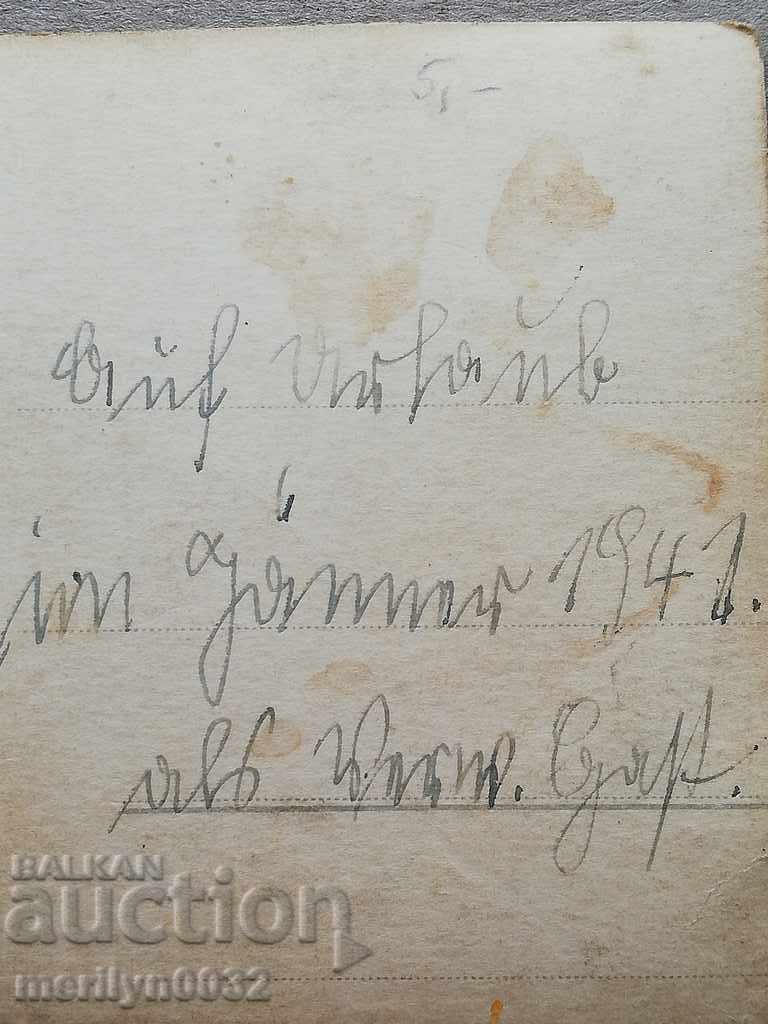 5,-
Auf Urlaub
im Jänner 1941.
als Verw. Gast.
BALKAN
auction
merilyn0032